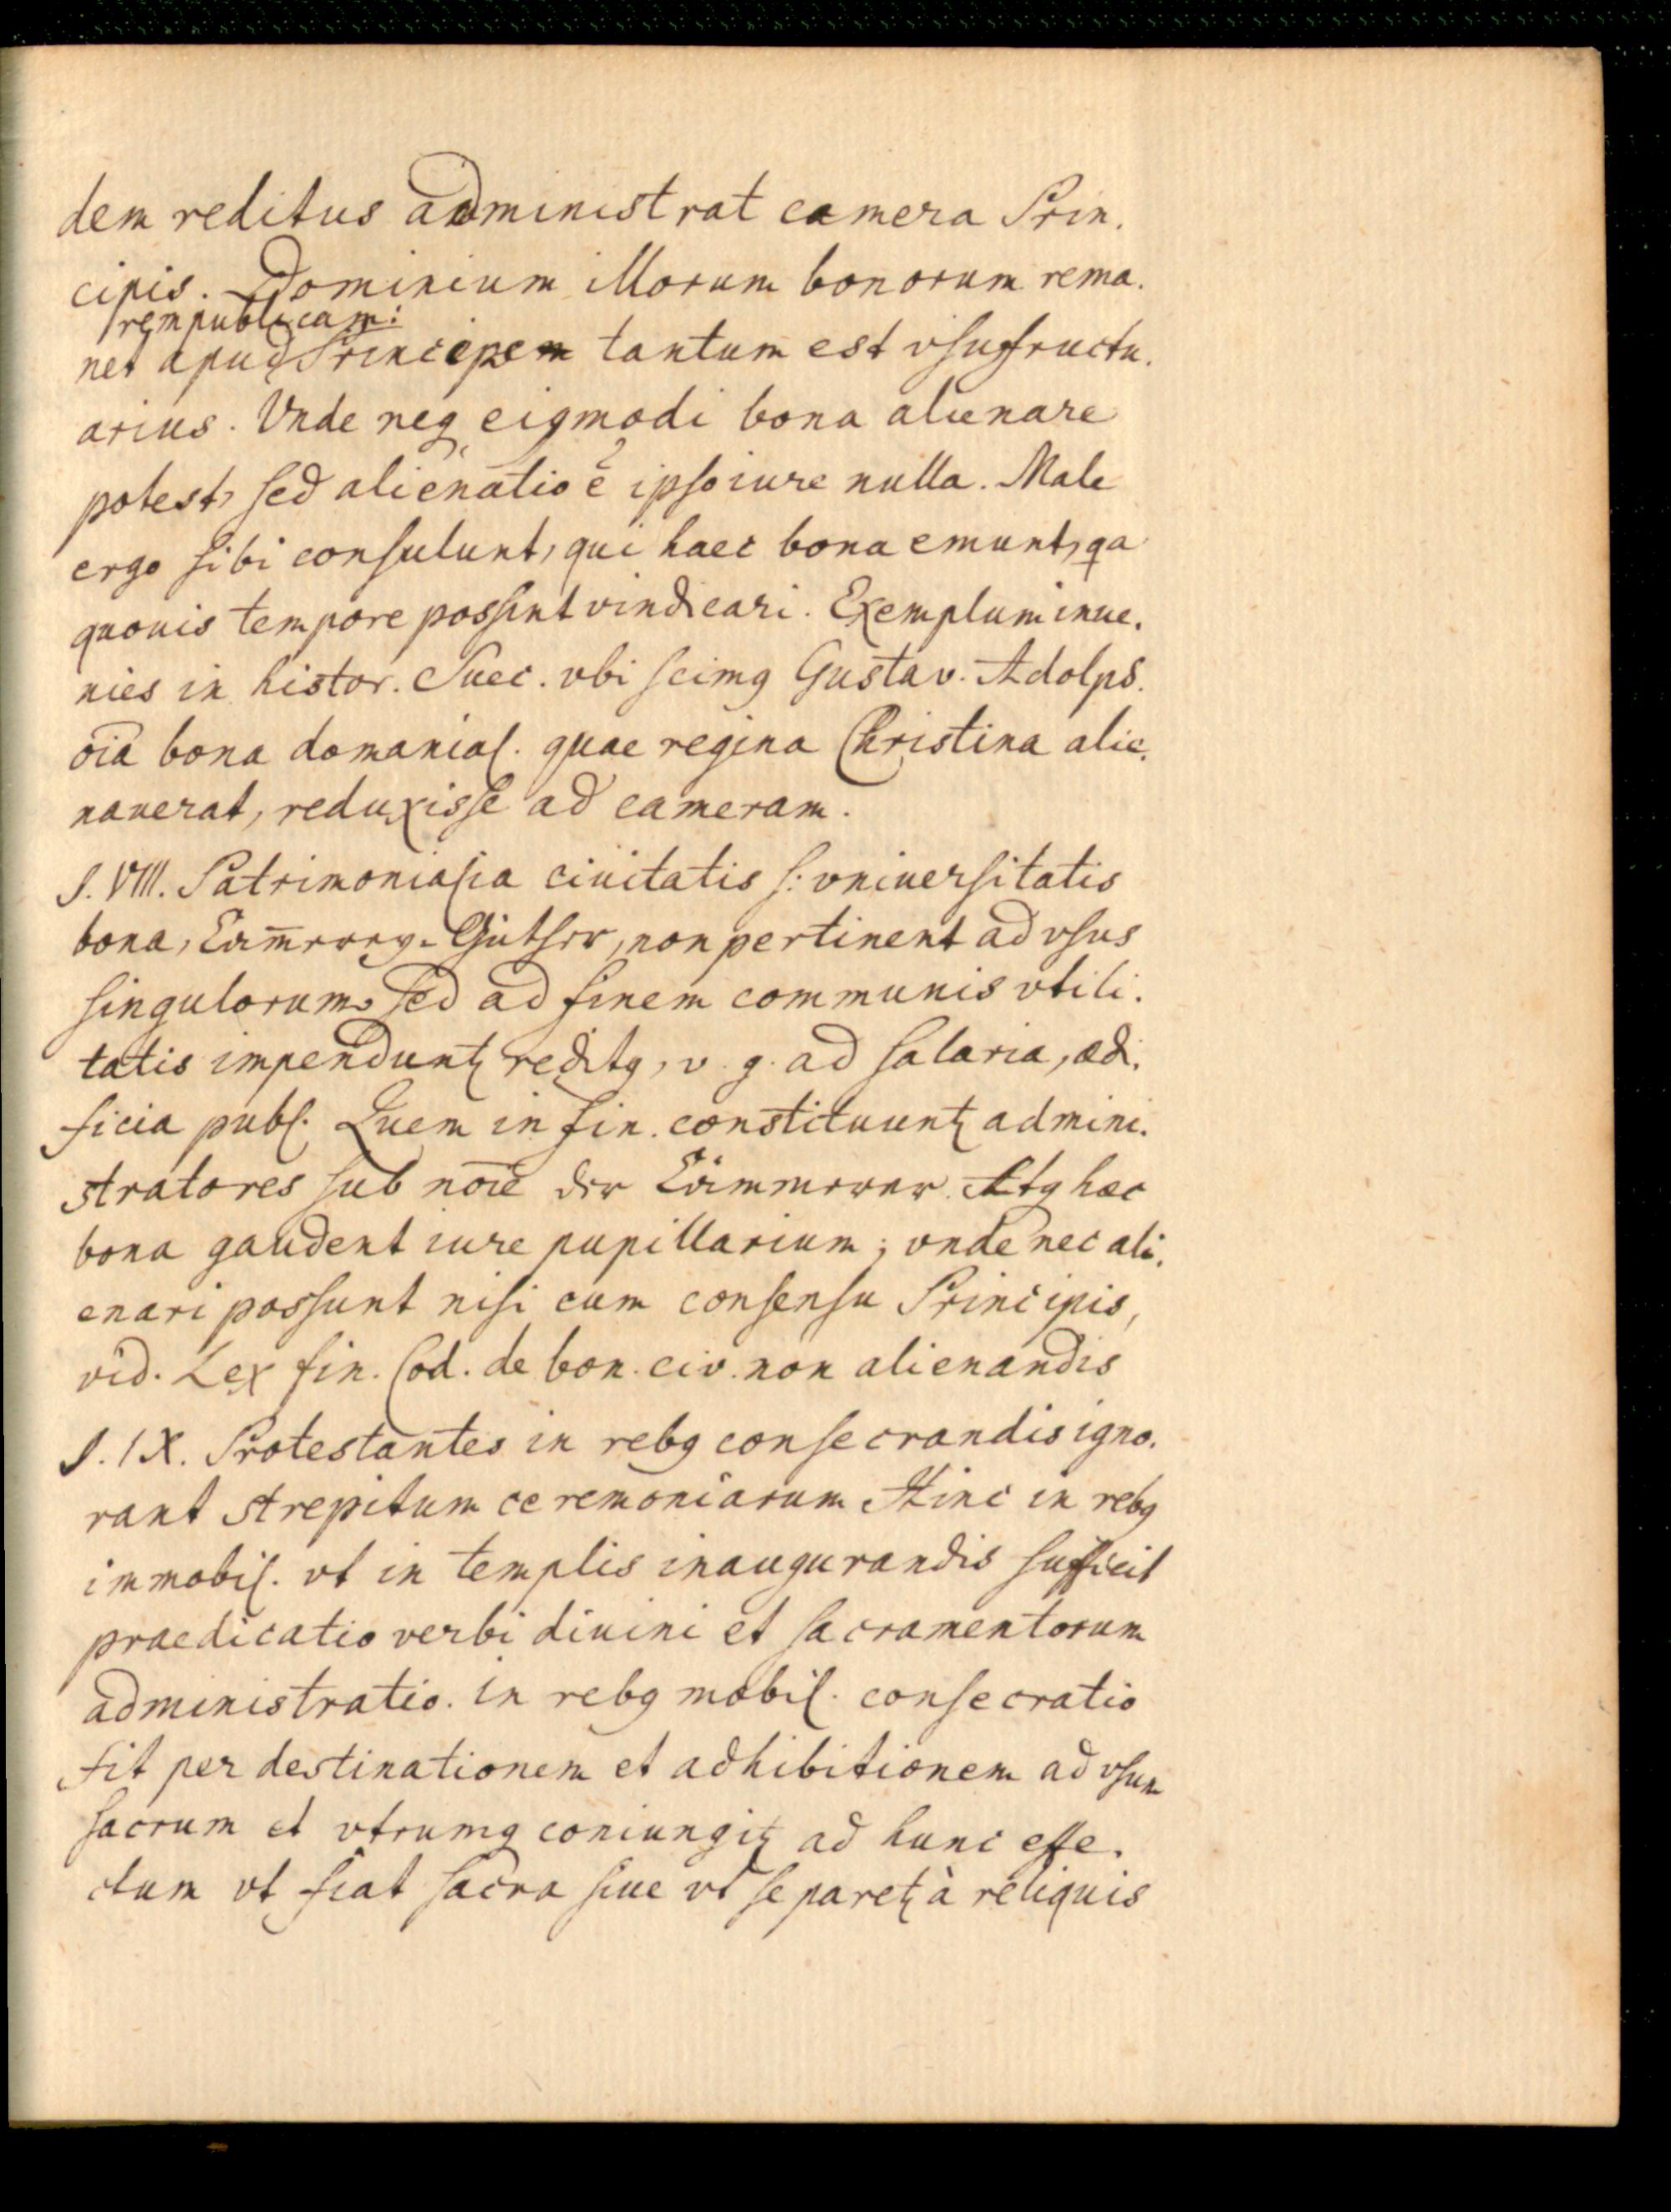 dem reditus administrat camera Prin.
cipis. Dominium illorum bonorum rema.
rempublicam:
net apud Principem tantum est vsufructu.
arius. Vnde neq eiqmodi bona alienare
potest, sed alienatio ē ipso iure nulla. Male
ergo sibi consulunt, qui haec bona emunt, qa
quouis tempore possint vindicari. Exemplum inue.
nies in histor. Suec. vbi scimq Gustav. Adolps.
oīa bona domanial. quae regina Christina alie.
nauerat, reduxisse ad cameram.
§. VIII. Patrimonialia ciuitatis s: vniuersitatis
bona, Cäm̄erey-Güther, non pertinent ad vsus
singulorum, sed ad finem communis vtili.
tatis impendunt reditq, v. g. ad salaria, ædi.
ficia publ. Quem in fin. constituunt admini.
stratores sub noīe der Cämmerer. Atq hæc
bona gaudent iure pupillarium; vnde nec ali.
enari possunt nisi cum consensu Principis,
vid. Lex fin. Cod. de bon. civ. non alienandis
§. IX. Protestantes in rebq consecrandis igno.
rant strepitum ceremoniarum Hinc in rebq
immobil. vt in templis inaugurandis sufficit
praedicatio verbi diuini et sacramentorum
administratio. in rebq mobil. consecratio
fit per destinationem et adhibitionem ad vsum
sacrum et vtrumq coniungit ad hunc effe.
ctum vt fiat sacra siue vt separet à reliquis